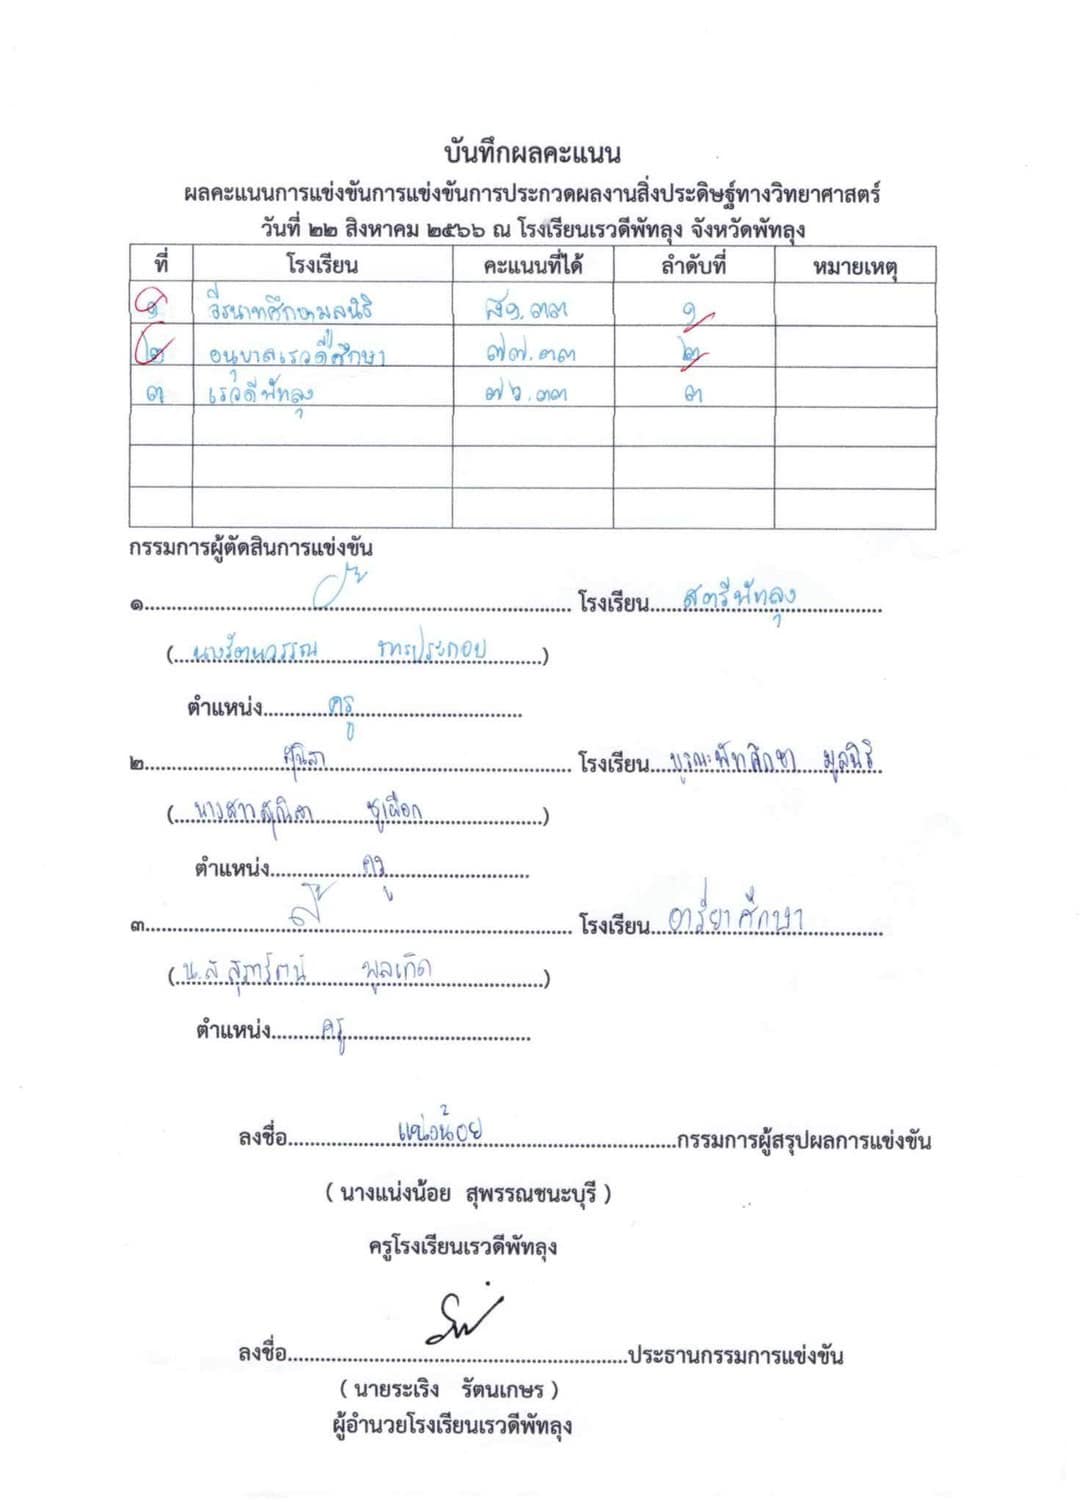 บันทึกผลคะแนน
ผลคะแนนการแข่งขันการแข่งขันการประกวดผลงานสิ่งประดิษฐ์ทางวิทยาศาสตร์
วันที่ ๒๒ สิงหาคม ๒๕๖๖ ณ โรงเรียนเรวดีพัทลุง จังหวัดพัทลุง
ที่ โรงเรียน คะแนนที่ได้ ลำดับที่ หมายเหตุ
๑ วีรนาทศึกษามูลนิธิ ๘๑.๓๓ ๑
๒ อนุบาลเรวดีศึกษา ๗๗.๓๓ ๒
๓ เรวดีพัทลุง ๗๖.๓๓ ๓
กรรมการผู้ตัดสินการแข่งขัน
๑. โรงเรียน สตรีพัทลุง
( นางรัตนวรรณ )
ตำแหน่ง ครู
๒. โรงเรียน บูรณะพัทศึกษา มูลนิธิ
( นางสาว ชูเผือก )
ตำแหน่ง ครู
๓. โรงเรียน อารียาศึกษา
( น.ส สุภารัตน์ พูลเกิด )
ตำแหน่ง ครู
ลงชื่อ แน่งน้อย กรรมการผู้สรุปผลการแข่งขัน
( นางแน่งน้อย สุพรรณชนะบุรี )
ครูโรงเรียนเรวดีพัทลุง
ลงชื่อ ประธานกรรมการแข่งขัน
( นายระเริง รัตนเกษร )
ผู้อำนวยโรงเรียนเรวดีพัทลุง